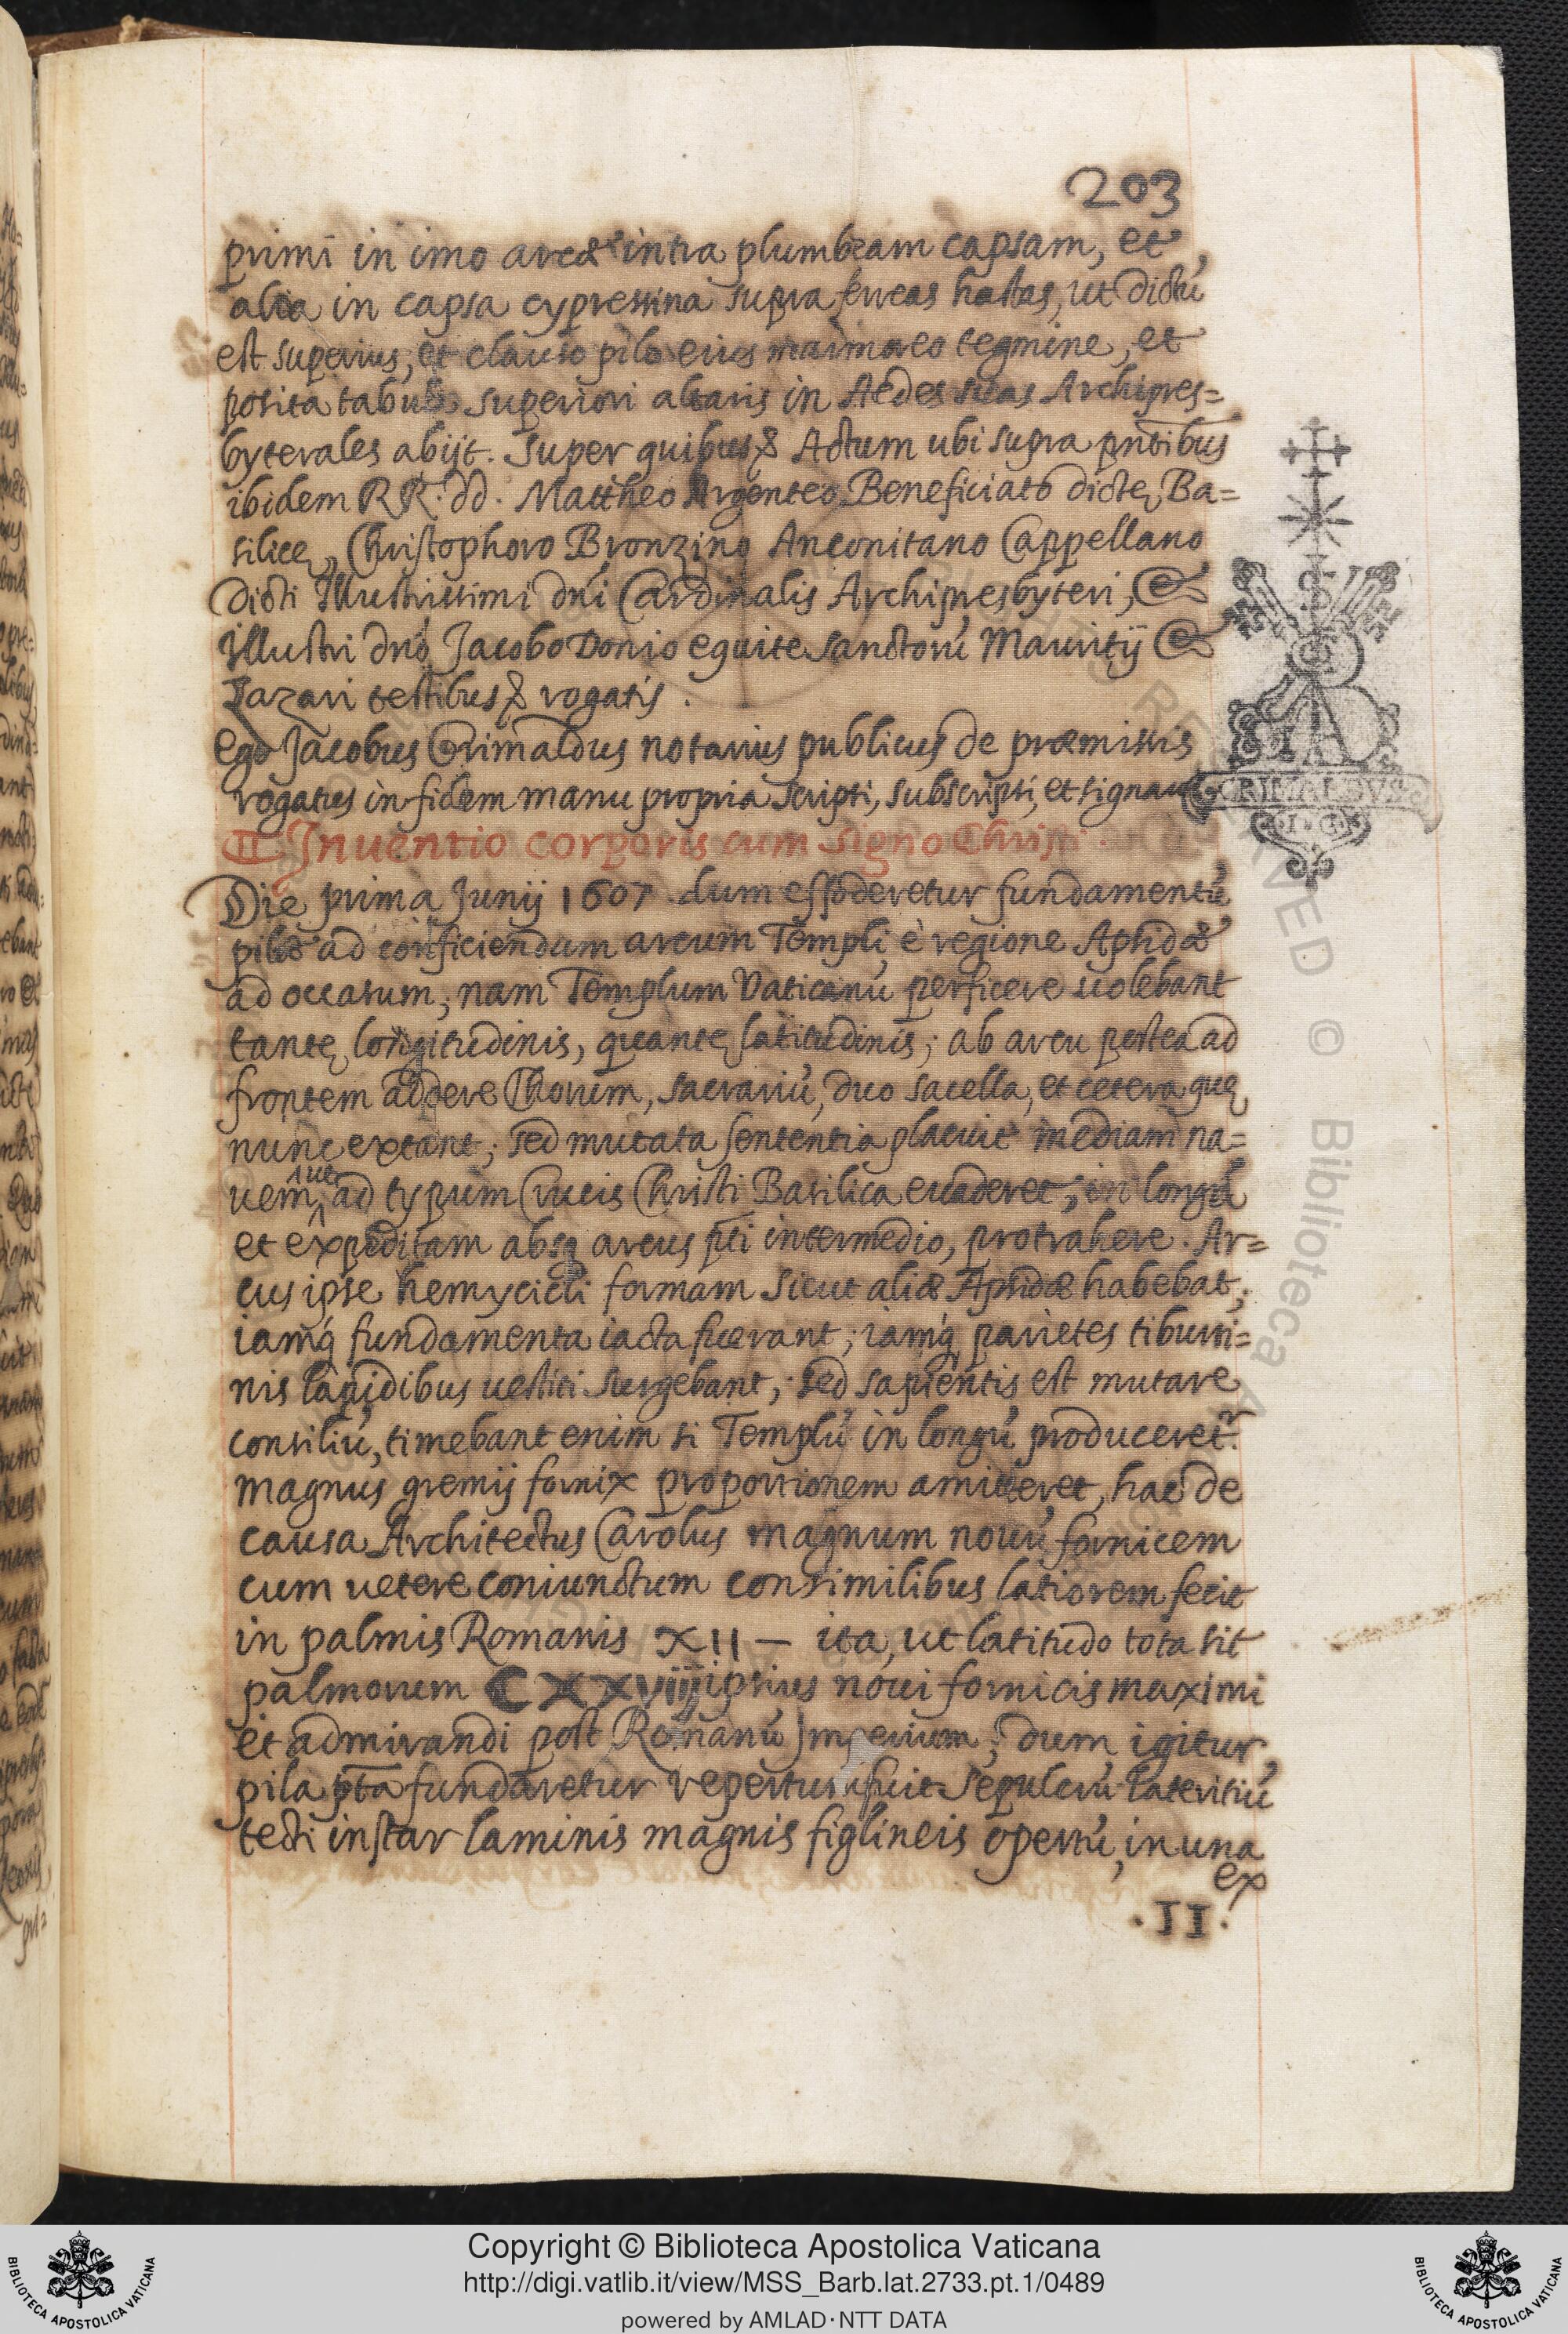 203
primi in imo arcæ intra plumbeam capsam, et
alia in capsa cypressina supra ferreas hastas, ut dictũ
est superius, et clauso pilo eius marmoreo tegmine, et
posita tabula superiori altaris in Aedes suas Archipres=
byterales abijt. Super quibus& Actum ubi supra pñtibus
ibidem RR. dd. Mattheo Argenteo Beneficiato dictę Ba=
silicę, Christophoro Bronzino Anconitano Cappellano
dicti Illustrissimi dñi Cardinalis Archipresbyteri, &
Illustri dño Jacobo Donio equite sanctorũ Mauritij &
Lazari testibus& rogatis.
Ego Jacobus Grimaldus notarius publicus de præmissis
rogatus in fidem manu propria scripsi, subscripsi, et signavi
GRIMALDVS
.I.G.
Inuentio corporis cum signo Christi.
Die prima Junij 1607 dum effoderetur fundamentũ
pilæ ad conficiendum arcum Templi è regione Apsidæ
ad occasum, nam Templum Vaticanũ perficere uolebant
tantę longitudinis, quantę latitudinis; ab arcu postea ad
frontem addere Chorum, sacrariũ, duo sacella, et cetera quę
nunc extant; sed mutata sententia placuit mediam na=
uem, ut ad typum Crucis Christi Basilica euaderet, in longũ
et expeditam absq arcus pti intermedio, protrahere. Ar=
cus ipse hemycicli formam sicut aliæ Apsidæ habebat,
iamq́ fundamenta iacta fuerant; iamq́ parietes tiburti=
nis lapidibus uestiti surgebant; sed sapientis est mutare
consiliũ, timebant enim si Templũ in longũ produceret̃
magnus gremij fornix proportionem amitteret, hac de
causa Architectus Carolus magnum nouũ fornicem
cum uetere coniunctum consimilibus latiorem fecit
in palmis Romanis XII — ita, ut latitudo tota sit
palmorum CXXVIIII ipsius noui fornicis maximi
et admirandi post Romanũ Imperium; dum igitur
pila pta fundaretur repertum fuit sepulcrũ lateritiũ
tecti instar laminis magnis figlineis opertũ, in una
ex
.II.
Copyright © Biblioteca Apostolica Vaticana
http://digi.vatlib.it/view/MSS_Barb.lat.2733.pt.1/0489
powered by AMLAD·NTT DATA
BIBLIOTECA APOSTOLICA VATICANA
BIBLIOTECA APOSTOLICA VATICANA